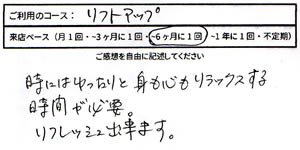 ご利用のコース： リフトアップ
来店ペース（月１回・~３ヶ月に１回・~６ヶ月に１回・~１年に１回・不定期）
ご感想を自由に記述してください
時にはゆったりと身も心もリラックスする
時間が必要。
リフレッシュ出来ます。